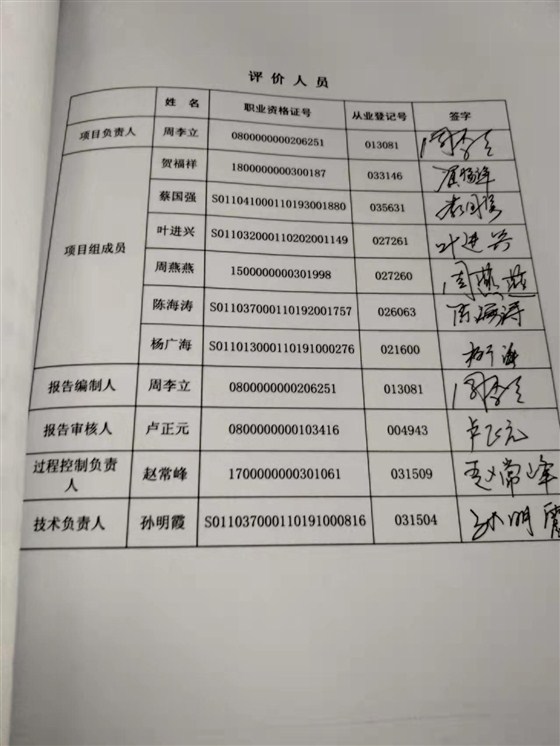 评价人员
姓 名 职业资格证号 从业登记号 签字
项目负责人 周李立 0800000000206251 013081 周李立
项目组成员 贺福祥 1800000000300187 033146
蔡国强 S011041000110193001880 035631
叶进兴 S011032000110202001149 027261 叶进兴
周燕燕 1500000000301998 027260 周燕燕
陈海涛 S011037000110192001757 026063 陈海涛
杨广海 S011013000110191000276 021600 杨广海
报告编制人 周李立 0800000000206251 013081 周李立
报告审核人 卢正元 0800000000103416 004943 卢正元
过程控制负责
人 赵常峰 1700000000301061 031509 赵常峰
技术负责人 孙明霞 S011037000110191000816 031504 孙明霞